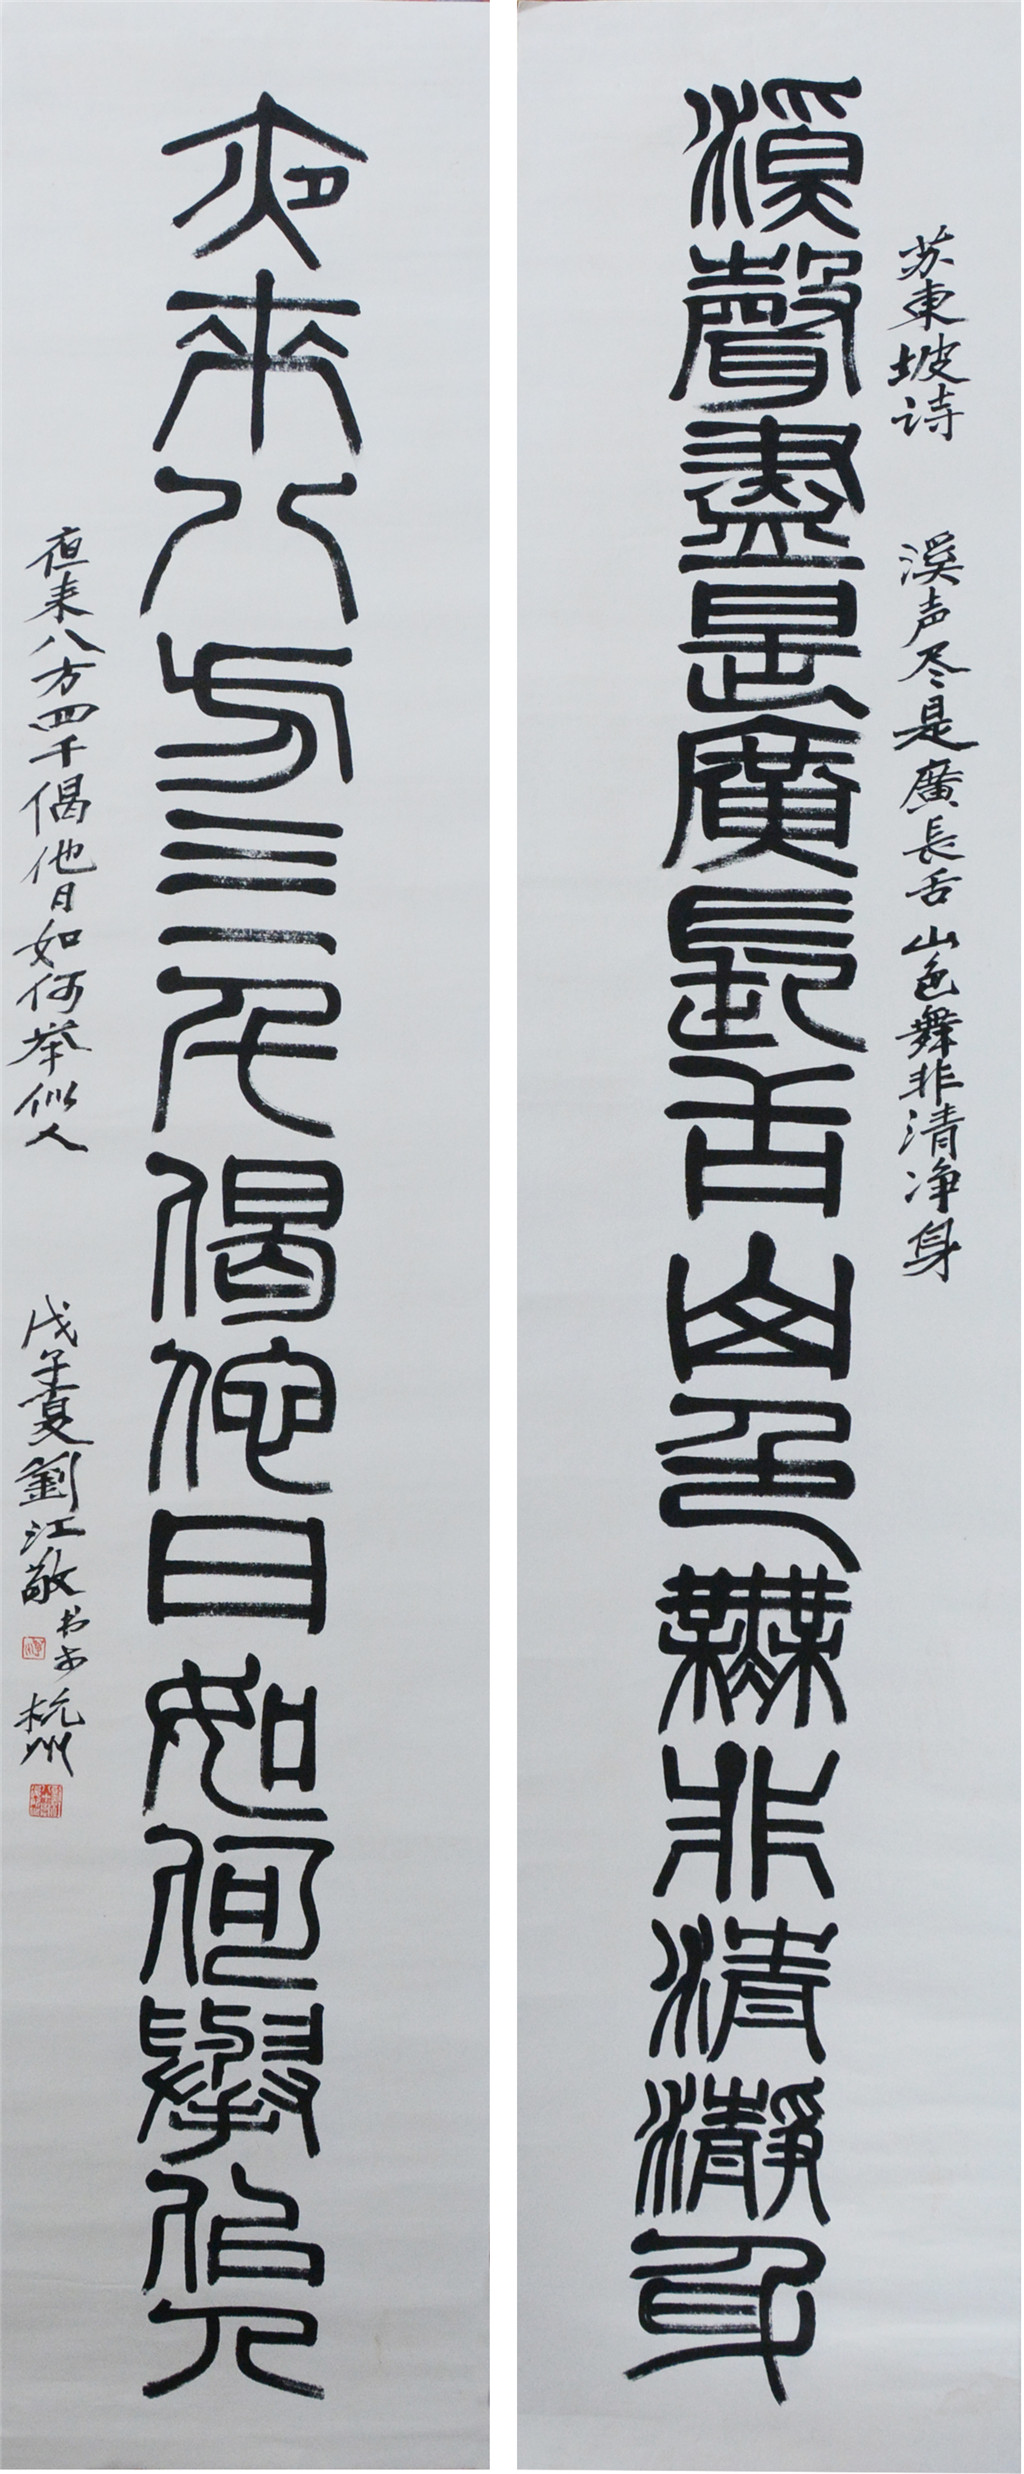 苏東坡诗 溪声尽是廣長舌山色舞非清净身
溪聲盡是廣長舌山色舞非清瀞身
夜來八方三二千偈佗日如何舉佀人
夜来八方四千偈他日如何举似人
戊子夏劉江敬书于杭州